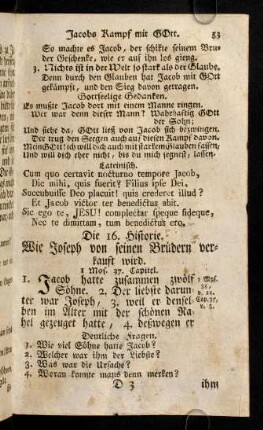 Jacobs Kampf mit GOtt. 53
So machte es Jacob, der schikte seinem Bru-
der Geschenke, wie er auf ihn los gieng.
3. Nichts ist in der Welt so stark als der Glaube.
Denn durch den Glauben hat Jacob mit GOtt
gekämpft, und den Sieg davon getragen.
Gottseelige Gedanken.
Es mußte Jacob dort mit einem Manne ringen.
Wer war denn dieser Mann? Wahrhaftig GOtt
der Sohn;
Und siehe da, GOtt ließ von Jacob sich bezwingen.
Der trug den Seegen auch auf diesen Kampf davon.
Mein GOtt! ich will dich auch mit starkem Glauben fassen,
Und will dich eher nicht, bis du mich segnest, lassen.
Lateinisch.
Cum quo certavit nocturno tempore Jacob,
Dic mihi, quis fuerit? Filius ipse Dei,
Succubuisse Deo placuit! quis crederet illud?
Et Jacob victor ter benedictus abit.
Sic ego te, JESU! complectar speque fideque,
Nec te dimittam, tum benedictus ero.
Die 16. Historie.
Wie Joseph von seinen Brüdern ver-
kauft wird.
1 Mos. 37. Capitel.
1. Jacob hatte zusammen zwölf
Söhne. 2. Der liebste darun-
ter war Joseph, 3. weil er densel-
ben im Alter mit der schönen Ra-
hel gezeuget hatte, 4. deßwegen er
1 Mos.
Cap. 37.
v. 3.
Deutliche Fragen.
1. Wie viel Söhne hatte Jacob?
2. Welcher war ihm der Liebste?
3. Was war die Ursache?
4. Woran konnte mans denn merken?
D 3 ihm